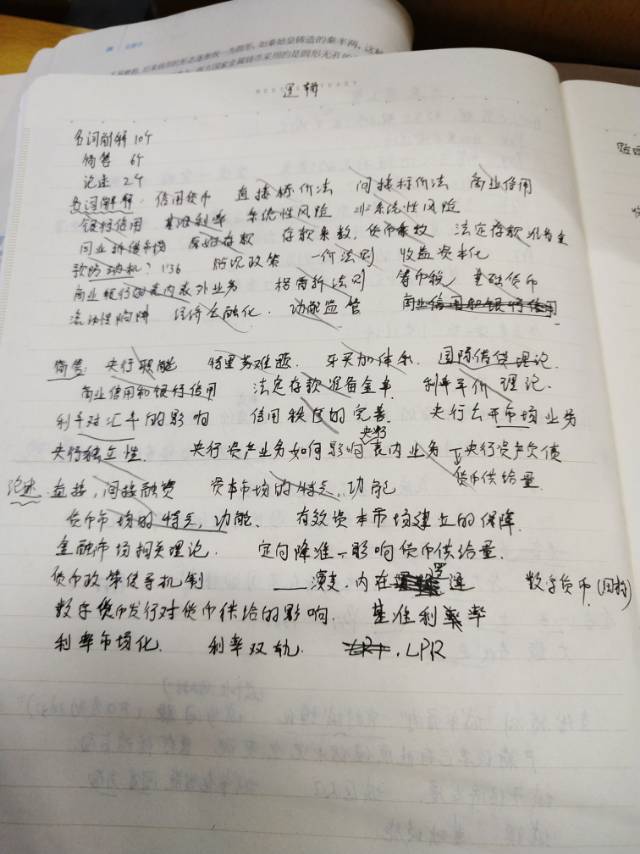 逻辑
名词解释 10个
简答 6个
论述 2个
名词解释: 信用货币 直接标价法 间接标价法 商业信用
银行信用 基准利率 系统性风险 非系统性风险
同业拆借市场 原始存款 存款乘数, 货币乘数 法定存款准备金
动机? 136 防况政策 一价法则 收益资本化
商业银行的表内表外业务 格雷欣法则 铸币税 基础货币
流动性陷阱 经济金融化. 功能监管 商业信用和银行信用
简答: 央行职能 特里芬难题 牙买加体系 国际借贷理论.
商业信用和银行信用 法定存款准备金率 利率平价理论.
利率对汇率的影响 信用秩序的完善 央行公开市场业务
央行独立性. 央行资产业务如何影响表内业务 央行资产负债
央行
货币供给量
论述. 直接, 间接融资 资本市场的特点, 功能
货币市场的特点, 功能. 有效资本市场建立的保障.
金融市场相关理论. 定向降准→影响货币供给量.
货币政策传导机制 ___演变. 内在逻 数字货币(同探)
逻
数字货币发行对货币供给的影响. 基准利率
利率市场化. 利率双轨. . LPR